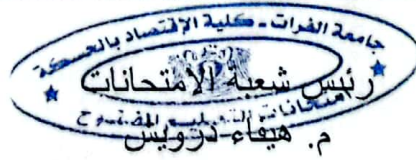 جامعة الفرات - كلية الإقتصاد بالحسكة
رئيس شعبة الامتحانات
امتحانات التعليم المفتوح
م. هيفاء درويش